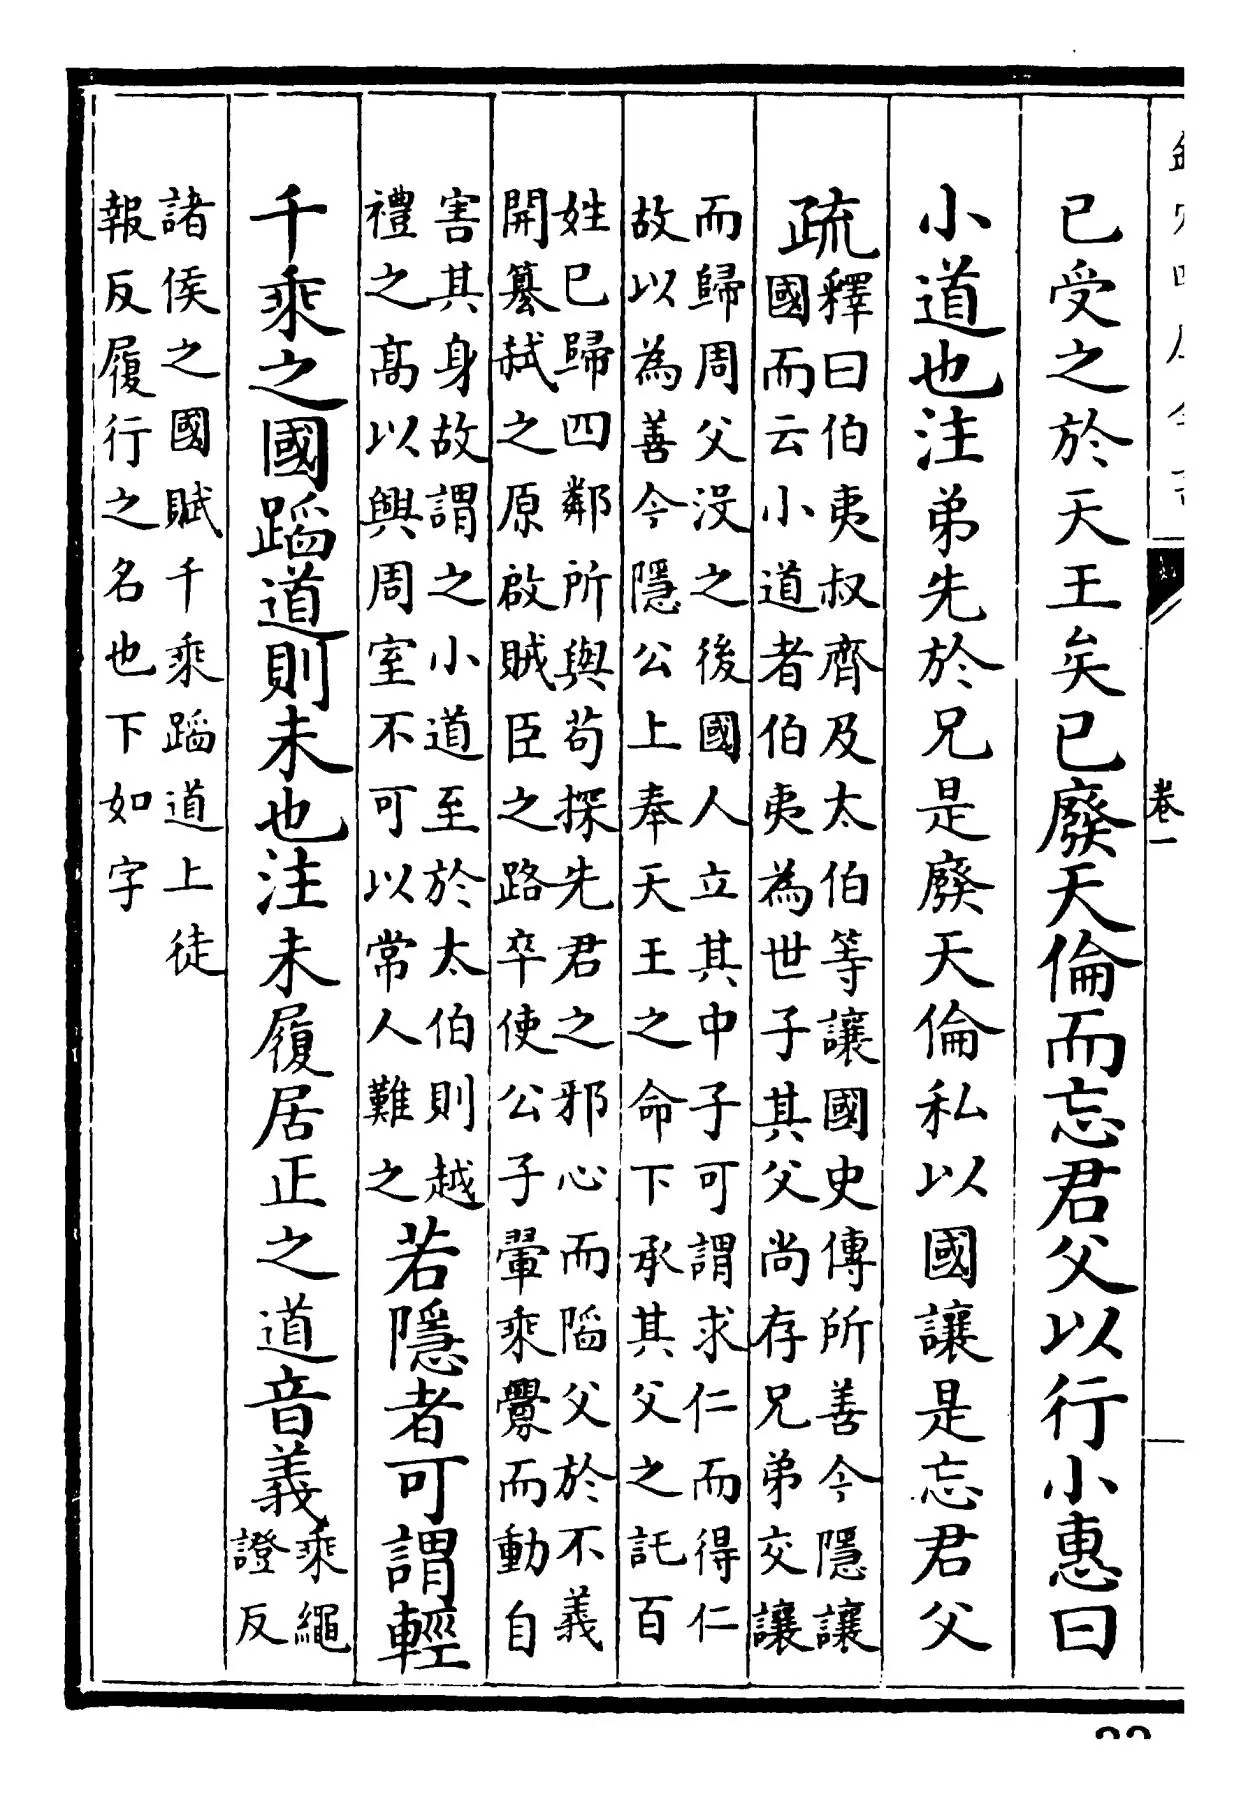 已受之於天王矣已廢天倫而忘君父以行小惠曰
小道也注弟先於兄是廢天倫私以國讓是忘君父
疏釋曰伯夷叔齊及太伯等讓國史傳所善今隱讓
國而云小道者伯夷為世子其父尚存兄弟交讓
而歸周父没之後國人立其中子可謂求仁而得仁
故以為善今隱公上奉天王之命下承其父之託百
姓已歸四鄰所與苟探先君之邪心而陷父於不義
開簒弑之原啟賊臣之路卒使公子翬乘釁而動自
害其身故謂之小道至於太伯則越
禮之髙以興周室不可以常人難之
若隱者可謂輕
千乘之國蹈道則未也注未履居正之道音義
乘繩
證反
諸侯之國賦千乘蹈道上徒
報反履行之名也下如字
卷一